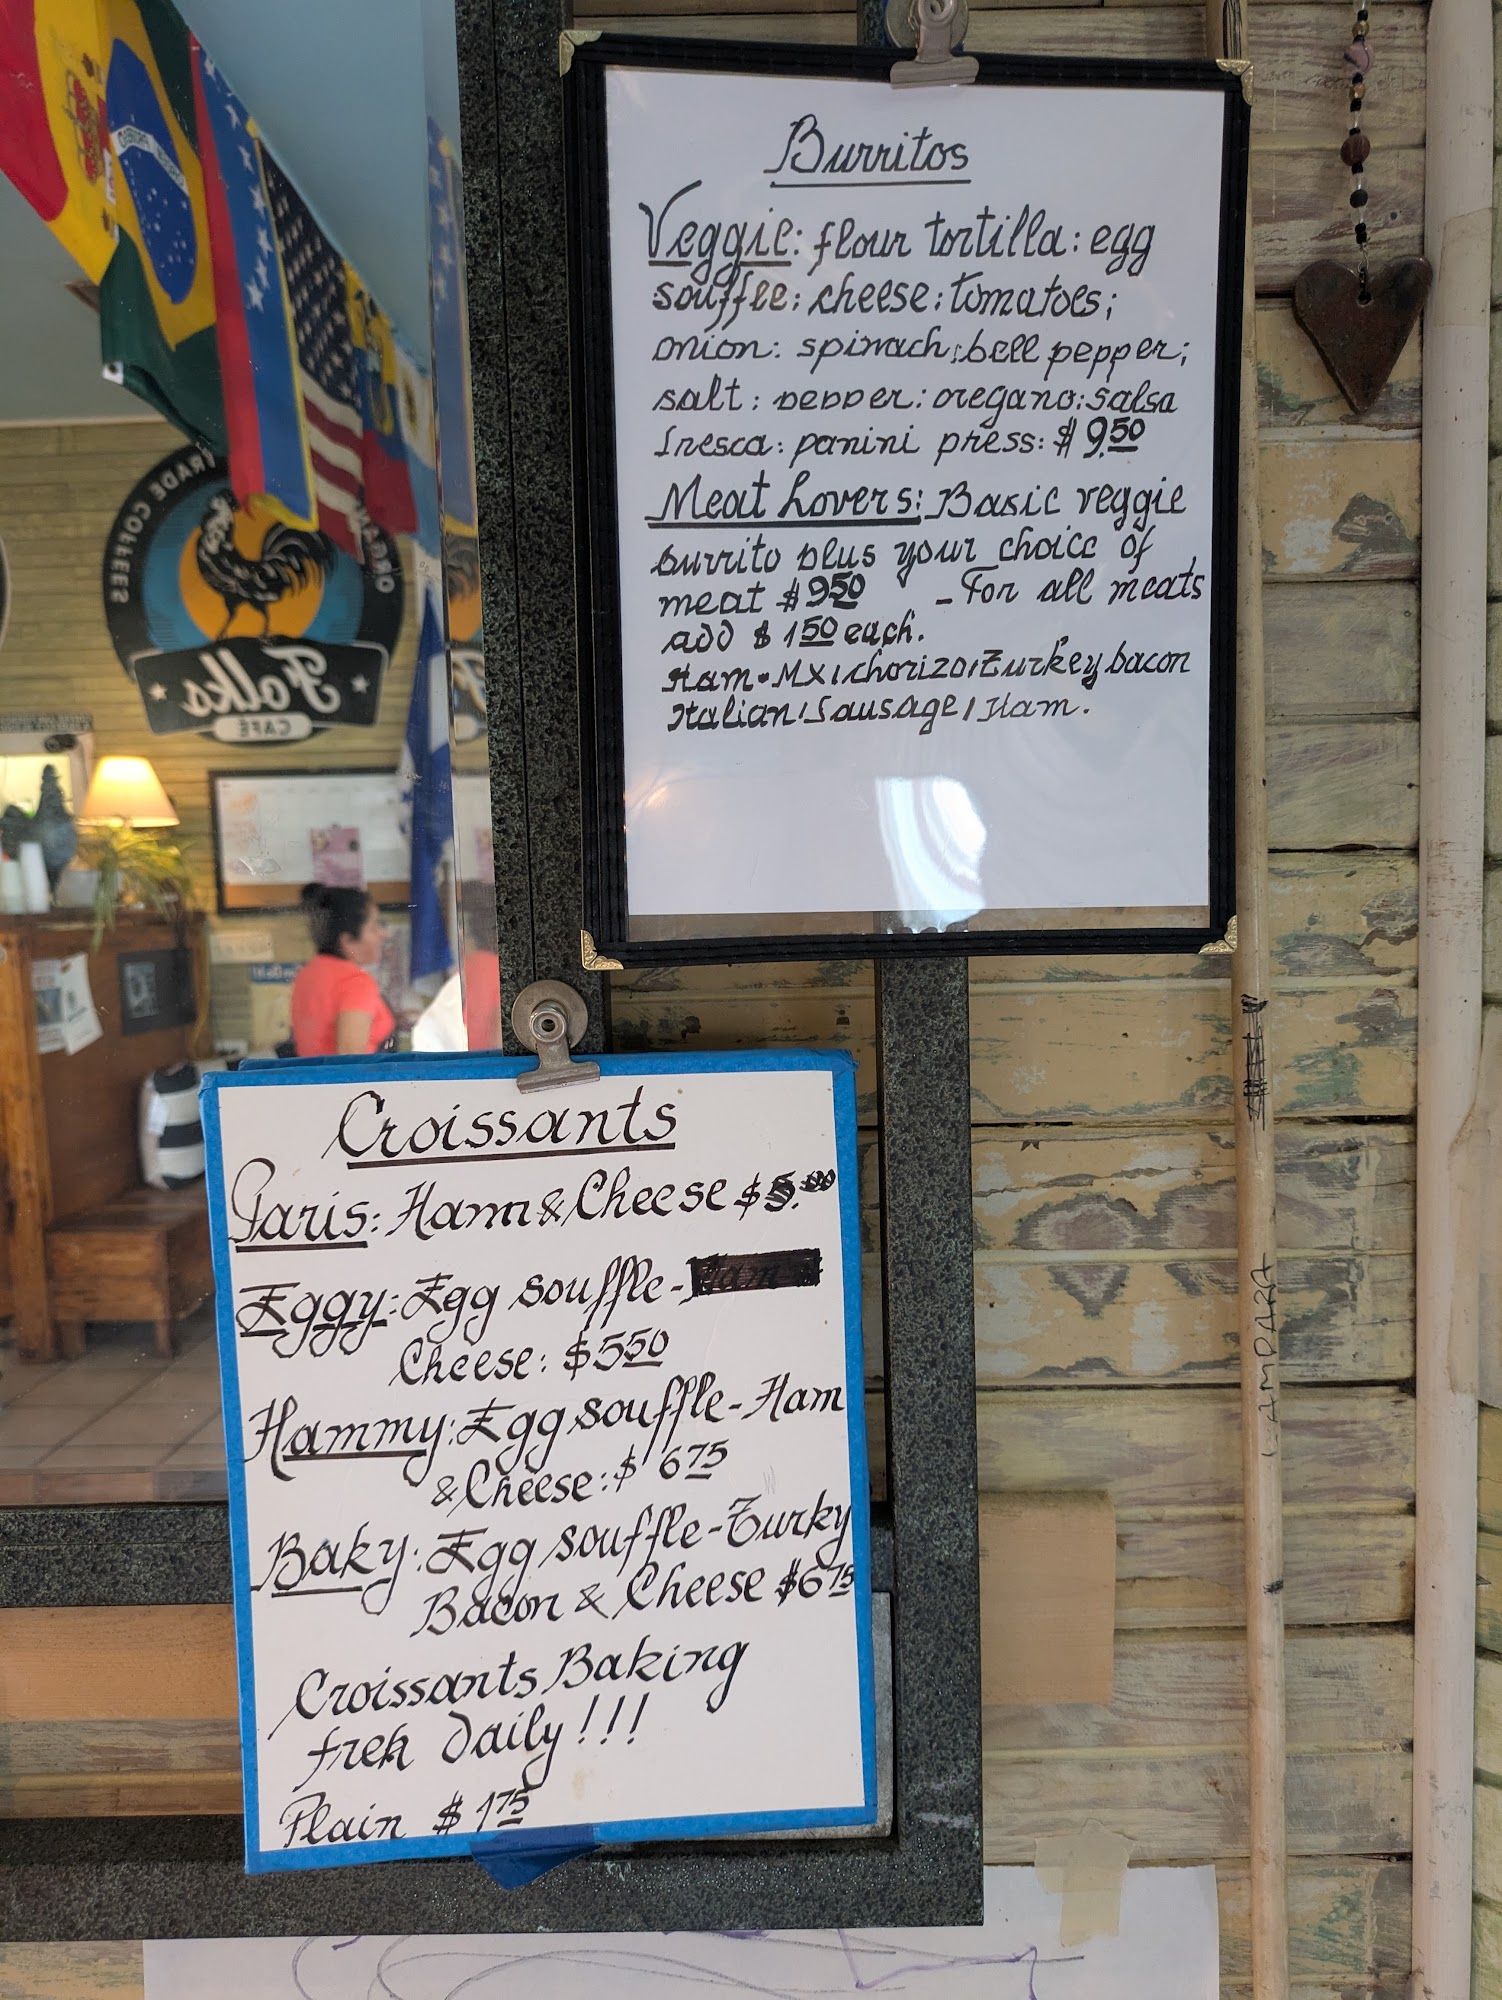 Burritos
Veggie: flour tortilla: egg
souffle: cheese: tomatoes;
onion: spinach; bell pepper;
salt: pepper: oregano: salsa
fresca: panini press: $9.50
Meat Lovers: Basic veggie
burrito plus your choice of
meat $9.50 - For all meats
add $1.50 each.
Ham • MX/chorizo/Turkey bacon
Italian/Sausage/Ham.
Croissants
Paris: Ham & Cheese $5.00
Eggy: Egg souffle-
Cheese: $5.50
Hammy: Egg souffle-Ham
& Cheese: $6.75
Baky: Egg souffle-Turky
Bacon & Cheese $6.75
Croissants Baking
freh daily!!!
Plain $1.75
TRADE COFFEES
Folks
CAFÉ
LAMPARA